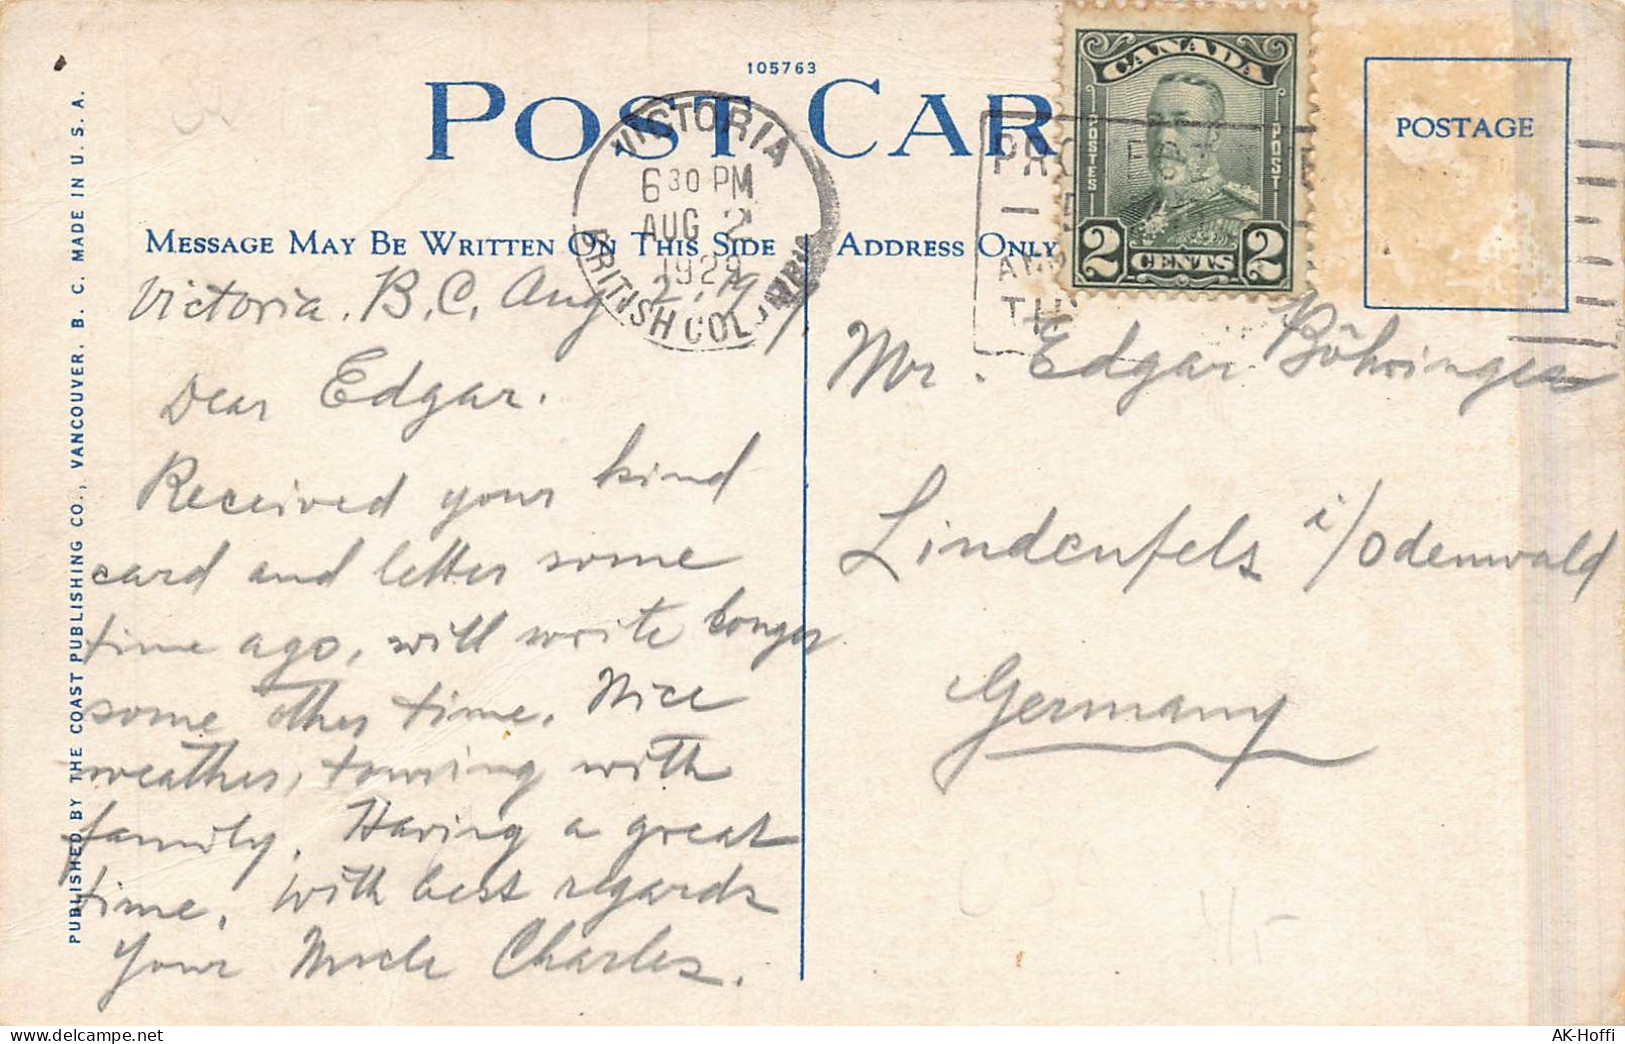 105763
POST CAR
CANADA
POSTES
POST
2 CENTS 2
POSTAGE
VICTORIA
6 30 PM
AUG 2
1929
BRITISH COLUMBIA
MESSAGE MAY BE WRITTEN ON THIS SIDE
ADDRESS ONLY
PUBLISHED BY THE COAST PUBLISHING CO., VANCOUVER, B. C. MADE IN U. S. A.
Victoria. B.C. Aug 2,
Dear Edgar.
Received your kind
card and letter some
time ago, will write longer
some other time. Nice
weather, touring with
family. Having a great
time. With best regards
Your Uncle Charles.
Mr. Edgar Böhringer
Lindenfels i/Odenwald
Germany
AK-Hoffi